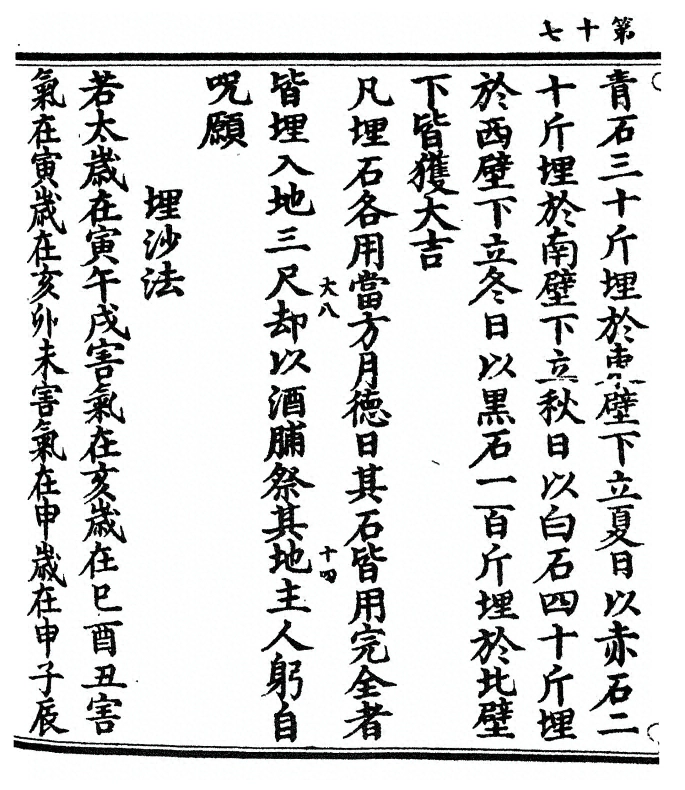 第十七
青石三十斤埋於東壁下立夏日以赤石二
十斤埋於南壁下立秋日以白石四十斤埋
於西壁下立冬日以黑石一百斤埋於北壁
下皆獲大吉
凡埋石各用當方月德日其石皆用完全者
大八
十四
皆埋入地三尺却以酒脯祭其地主人躬自
呪願
埋沙法
若太歲在寅午戌害氣在亥歲在巳酉丑害
氣在寅歲在亥卯未害氣在申歲在申子辰